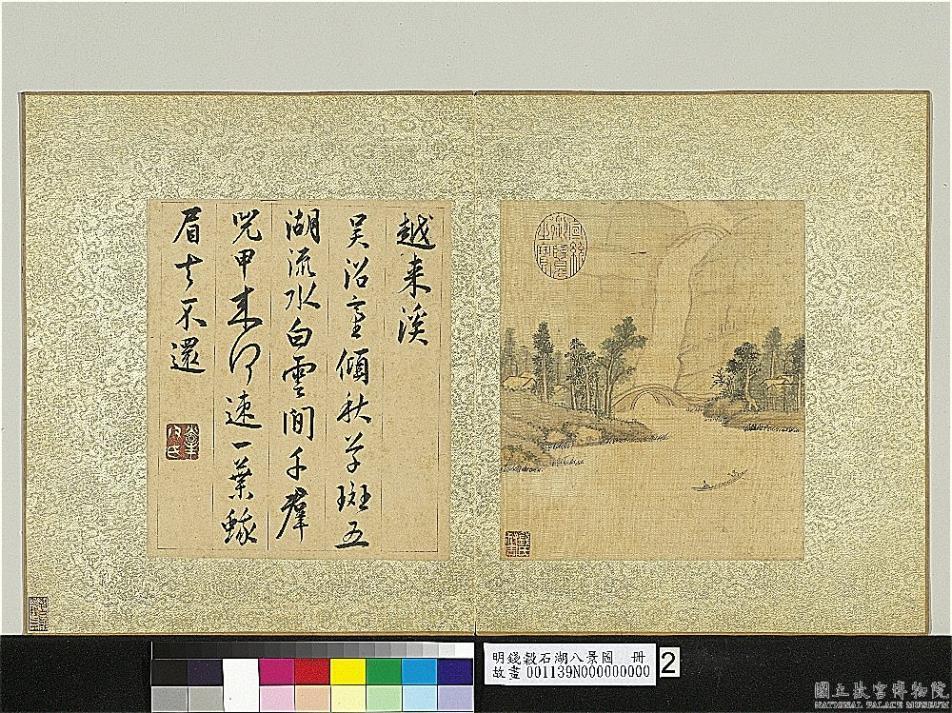 越来溪
吳沼臺傾秋草斑五
湖流水白雲間千群
兕甲来何速一葉蛾
眉去不還
宣統御覽之寶
明錢穀石湖八景圖 冊
故畫 001139N000000000
2
國立故宮博物院
NATIONAL PALACE MUSEUM